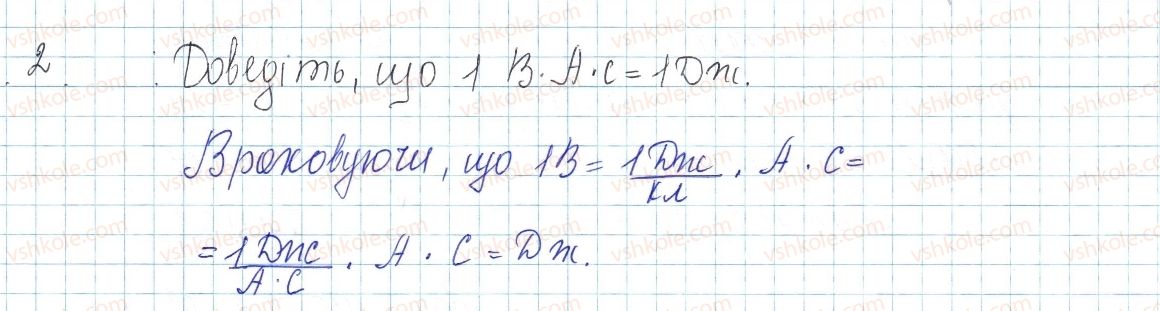 2. Доведіть, що 1 В·А·с = 1 Дж.
Враховуючи, що 1В = 1 Дж/кл · А · С =
= 1 Дж/А·С · А · С = Дж.